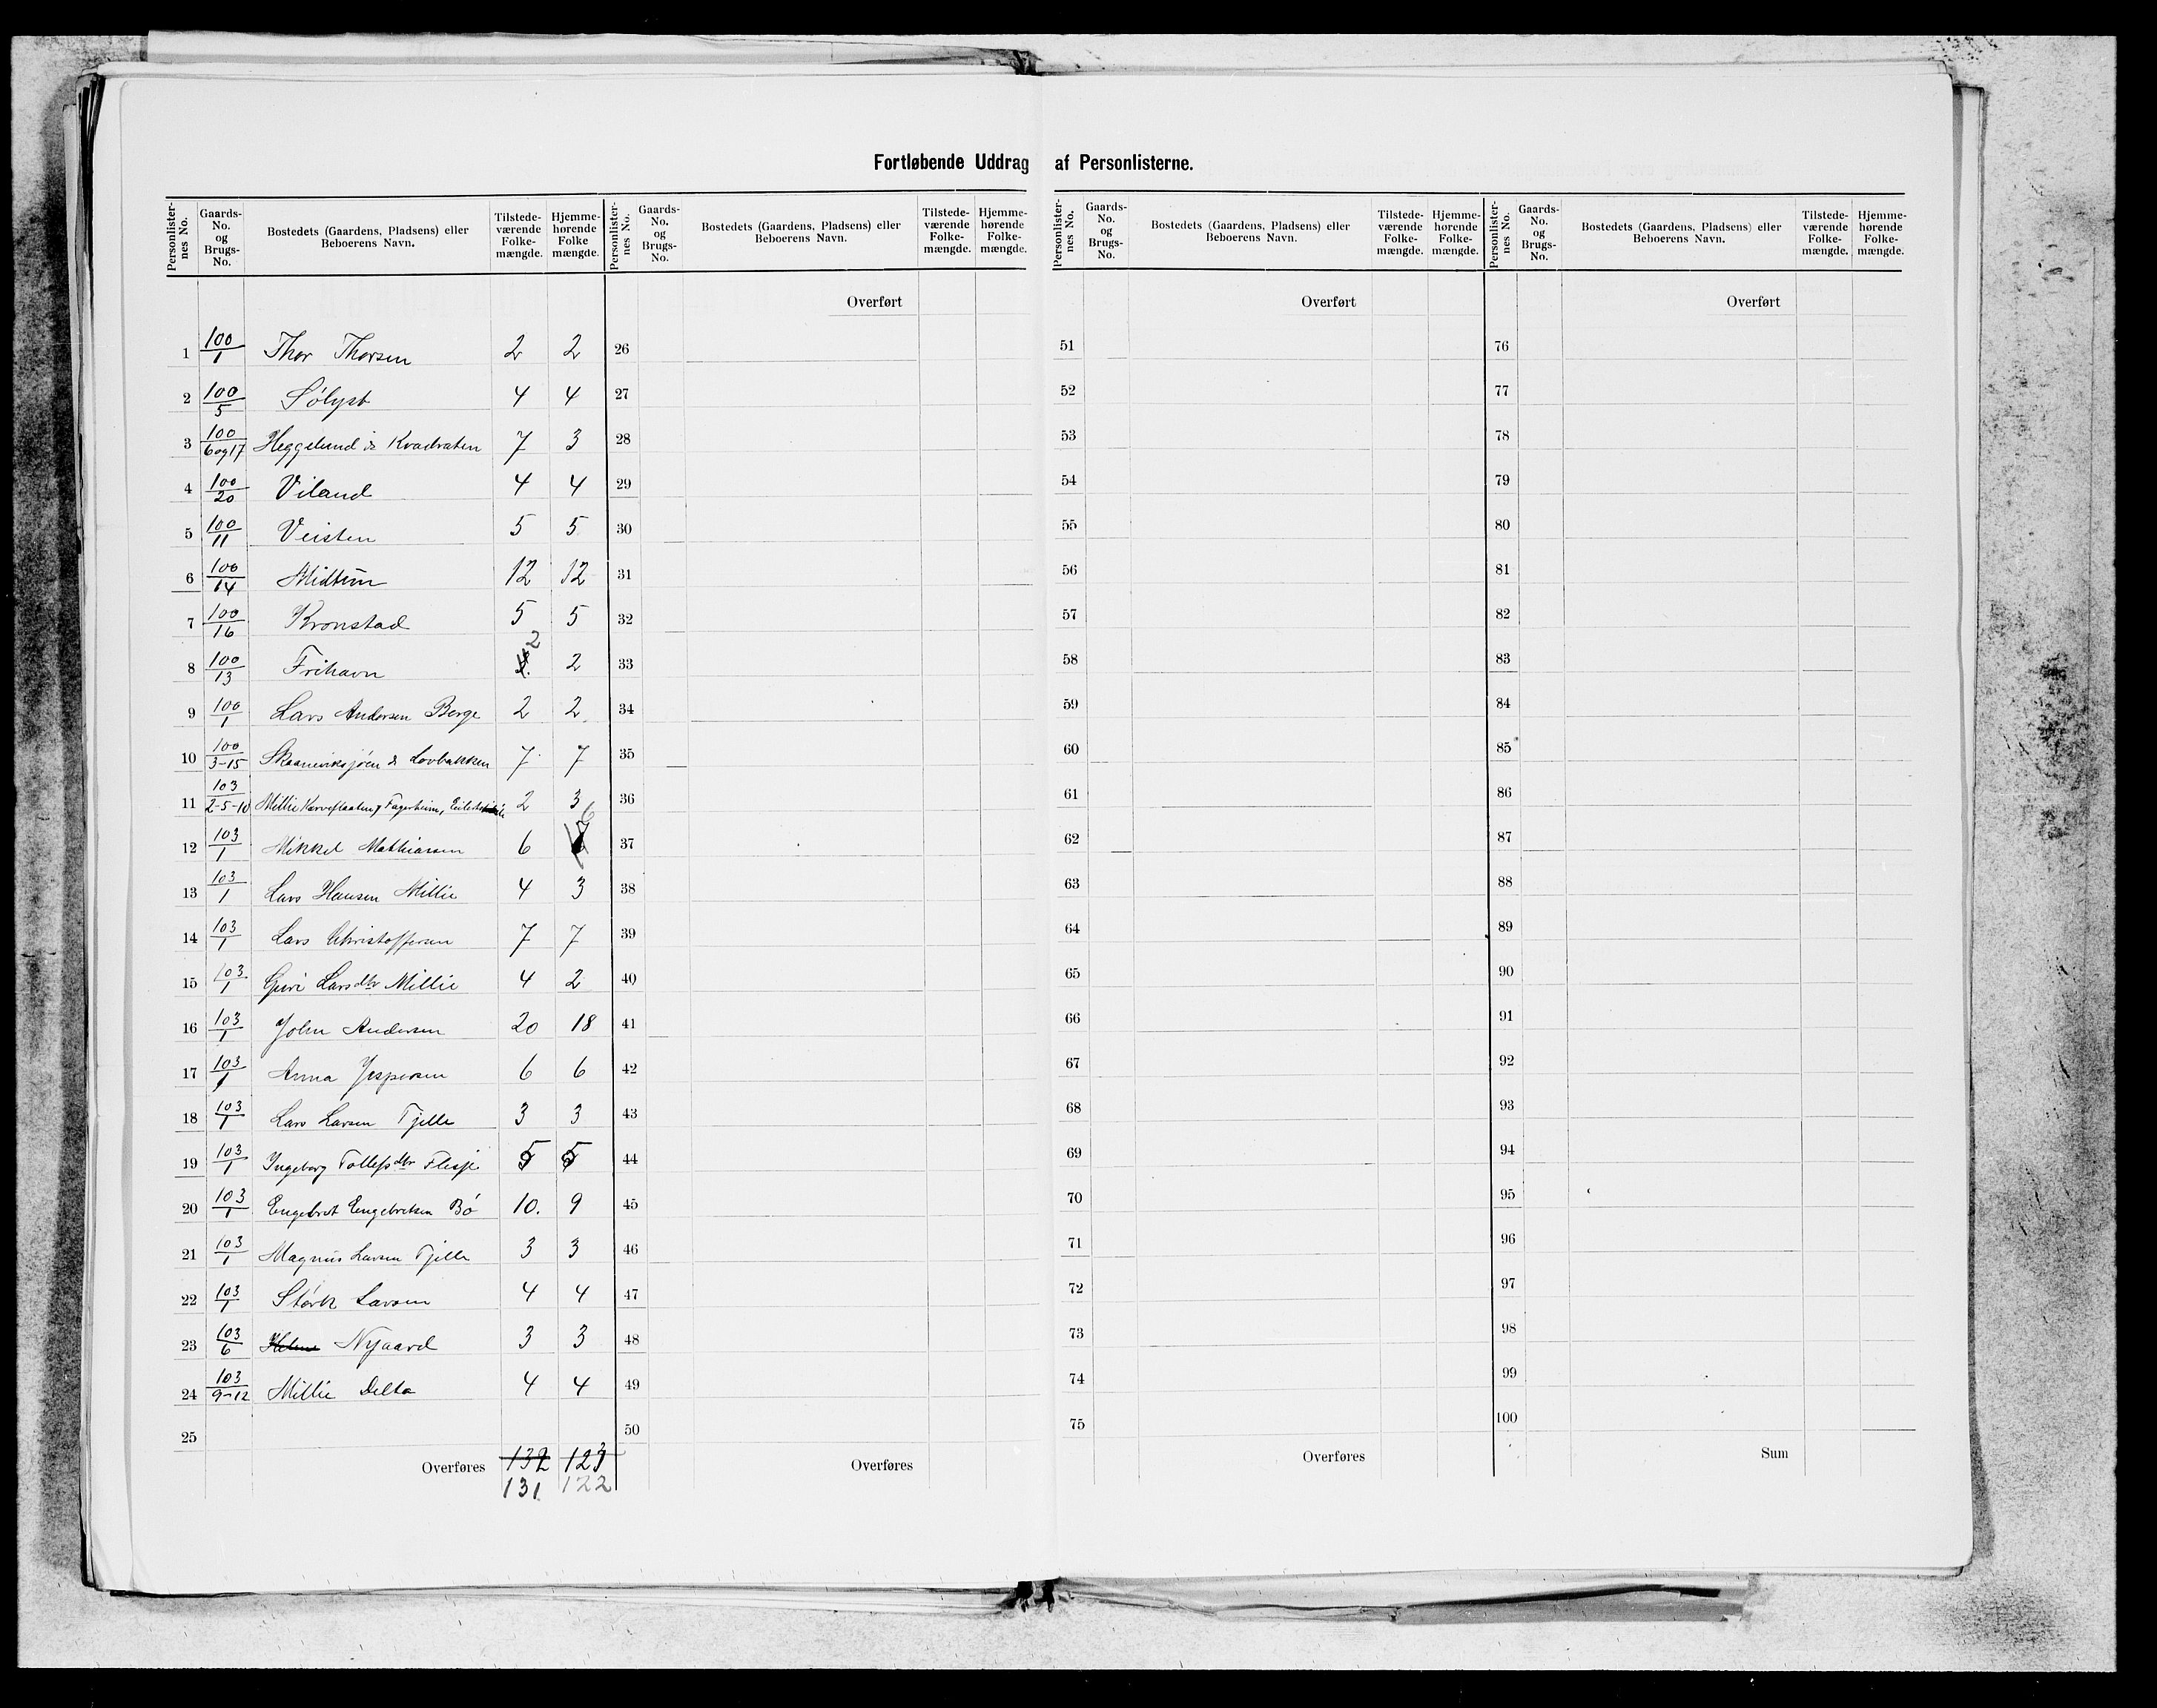 Fortløbende Uddrag af Personlisterne.
Personlisternes No. | Gaards-No. og Brugs-No. | Bostedets (Gaardens, Pladsens) eller Beboerens Navn. | Tilstedeværende Folkemængde. | Hjemmehørende Folkemængde.
Personlisternes No. | Gaards-No. og Brugs-No. | Bostedets (Gaardens, Pladsens) eller Beboerens Navn. | Tilstedeværende Folkemængde. | Hjemmehørende Folkemængde.
Personlisternes No. | Gaards-No. og Brugs-No. | Bostedets (Gaardens, Pladsens) eller Beboerens Navn. | Tilstedeværende Folkemængde. | Hjemmehørende Folkemængde.
Personlisternes No. | Gaards-No. og Brugs-No. | Bostedets (Gaardens, Pladsens) eller Beboerens Navn. | Tilstedeværende Folkemængde. | Hjemmehørende Folkemængde.
Overført Overført Overført
1 100/1 Thor Thorsen 2 2 26 51 76
2 100/5 Sólyst 4 4 27 52 77
3 100/6og17 Heggelund & Kvadraten 7 3 28 53 78
4 100/20 Viland 4 4 29 54 79
5 100/11 Veisten 5 5 30 55 80
6 100/14 Midtun 12 12 31 56 81
7 100/16 Kronstad 5 5 32 57 82
8 100/13 Frihavn 2 2 33 58 83
9 100/1 Lars Andersen Berge 2 2 34 59 84
10 100/3-15 Skaaneviksjøen & Lovbakken 7 7 35 60 85
11 103/2-5-10 Millie Fagerheim, 2 3 36 61 86
12 103/1 Mikkel Mathiasen 6 6 37 62 87
13 103/1 Lars Hansen Millie 4 3 38 63 88
14 103/1 Lars Christoffersen 7 7 39 64 89
15 103/1 Guri Larsdtr Millie 4 2 40 65 90
16 103/1 John Andersen 20 18 41 66 91
17 103/1 Anna Jespersen 6 6 42 67 92
18 103/1 Lars Larsen Tjelle 3 3 43 68 93
19 103/1 Ingeborg Tollefsdtr Flesje 5 5 44 69 94
20 103/1 Engebret Engebretsen Bó 10. 9 45 70 95
21 103/1 Magnus Larsen Tjelle 3 3 46 71 96
22 103/1 Størk Larsen 4 4 47 72 97
23 103/6 Nygaard 3 3 48 73 98
24 103/9-12 Millie Delta 4 4 49 74 99
25 50 75 100
Overføres 132 123 Overføres Overføres Sum
131 122